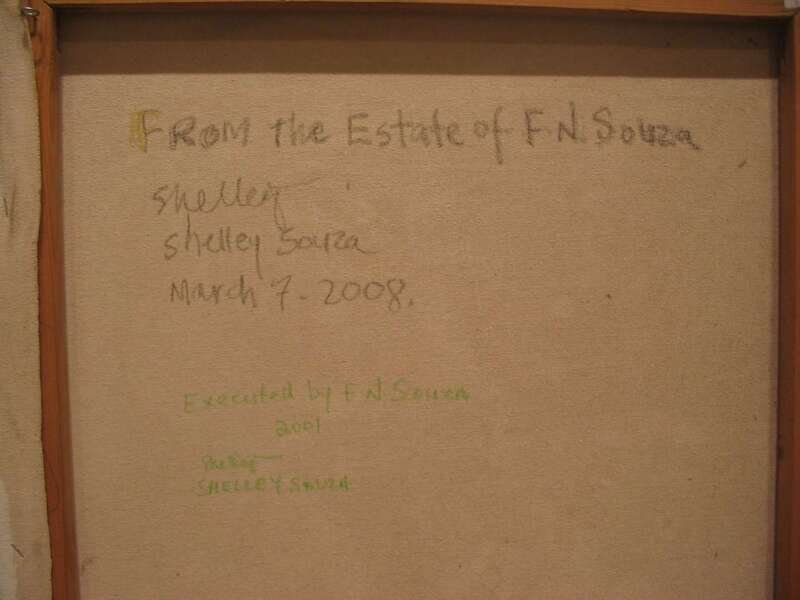 FROM the Estate of F.N. Souza
shelley
shelley Souza
March 7 - 2008.
Executed by F N Souza
2001
Shelley
SHELLEY SOUZA